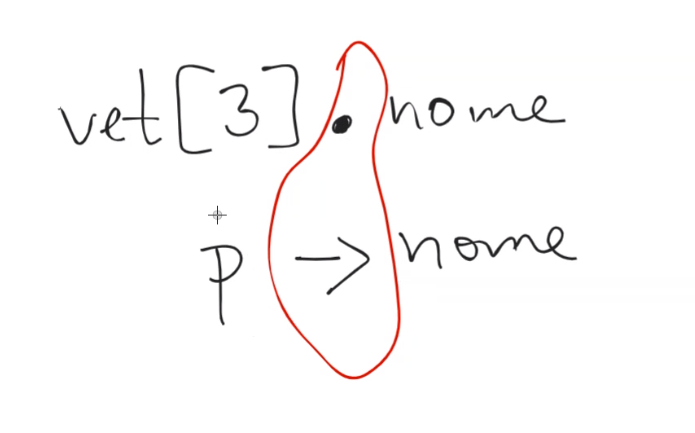 vet[3].nome
p->nome